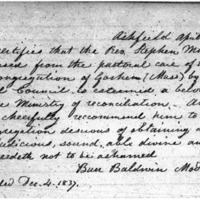 Ashfield April
certifies that the Rev. Stephen M
ised from the pastoral care of
ongregation of Goshen (Mass) by
Council, is esteemed a belov
e Ministry of reconciliation. A
cheerfully reccommend him to
regation desirous of obtaining a
judicious, sound, able divine an
eedeth not to be ashamed
Burr Baldwin Mod
ded Dec. 4. 1837.